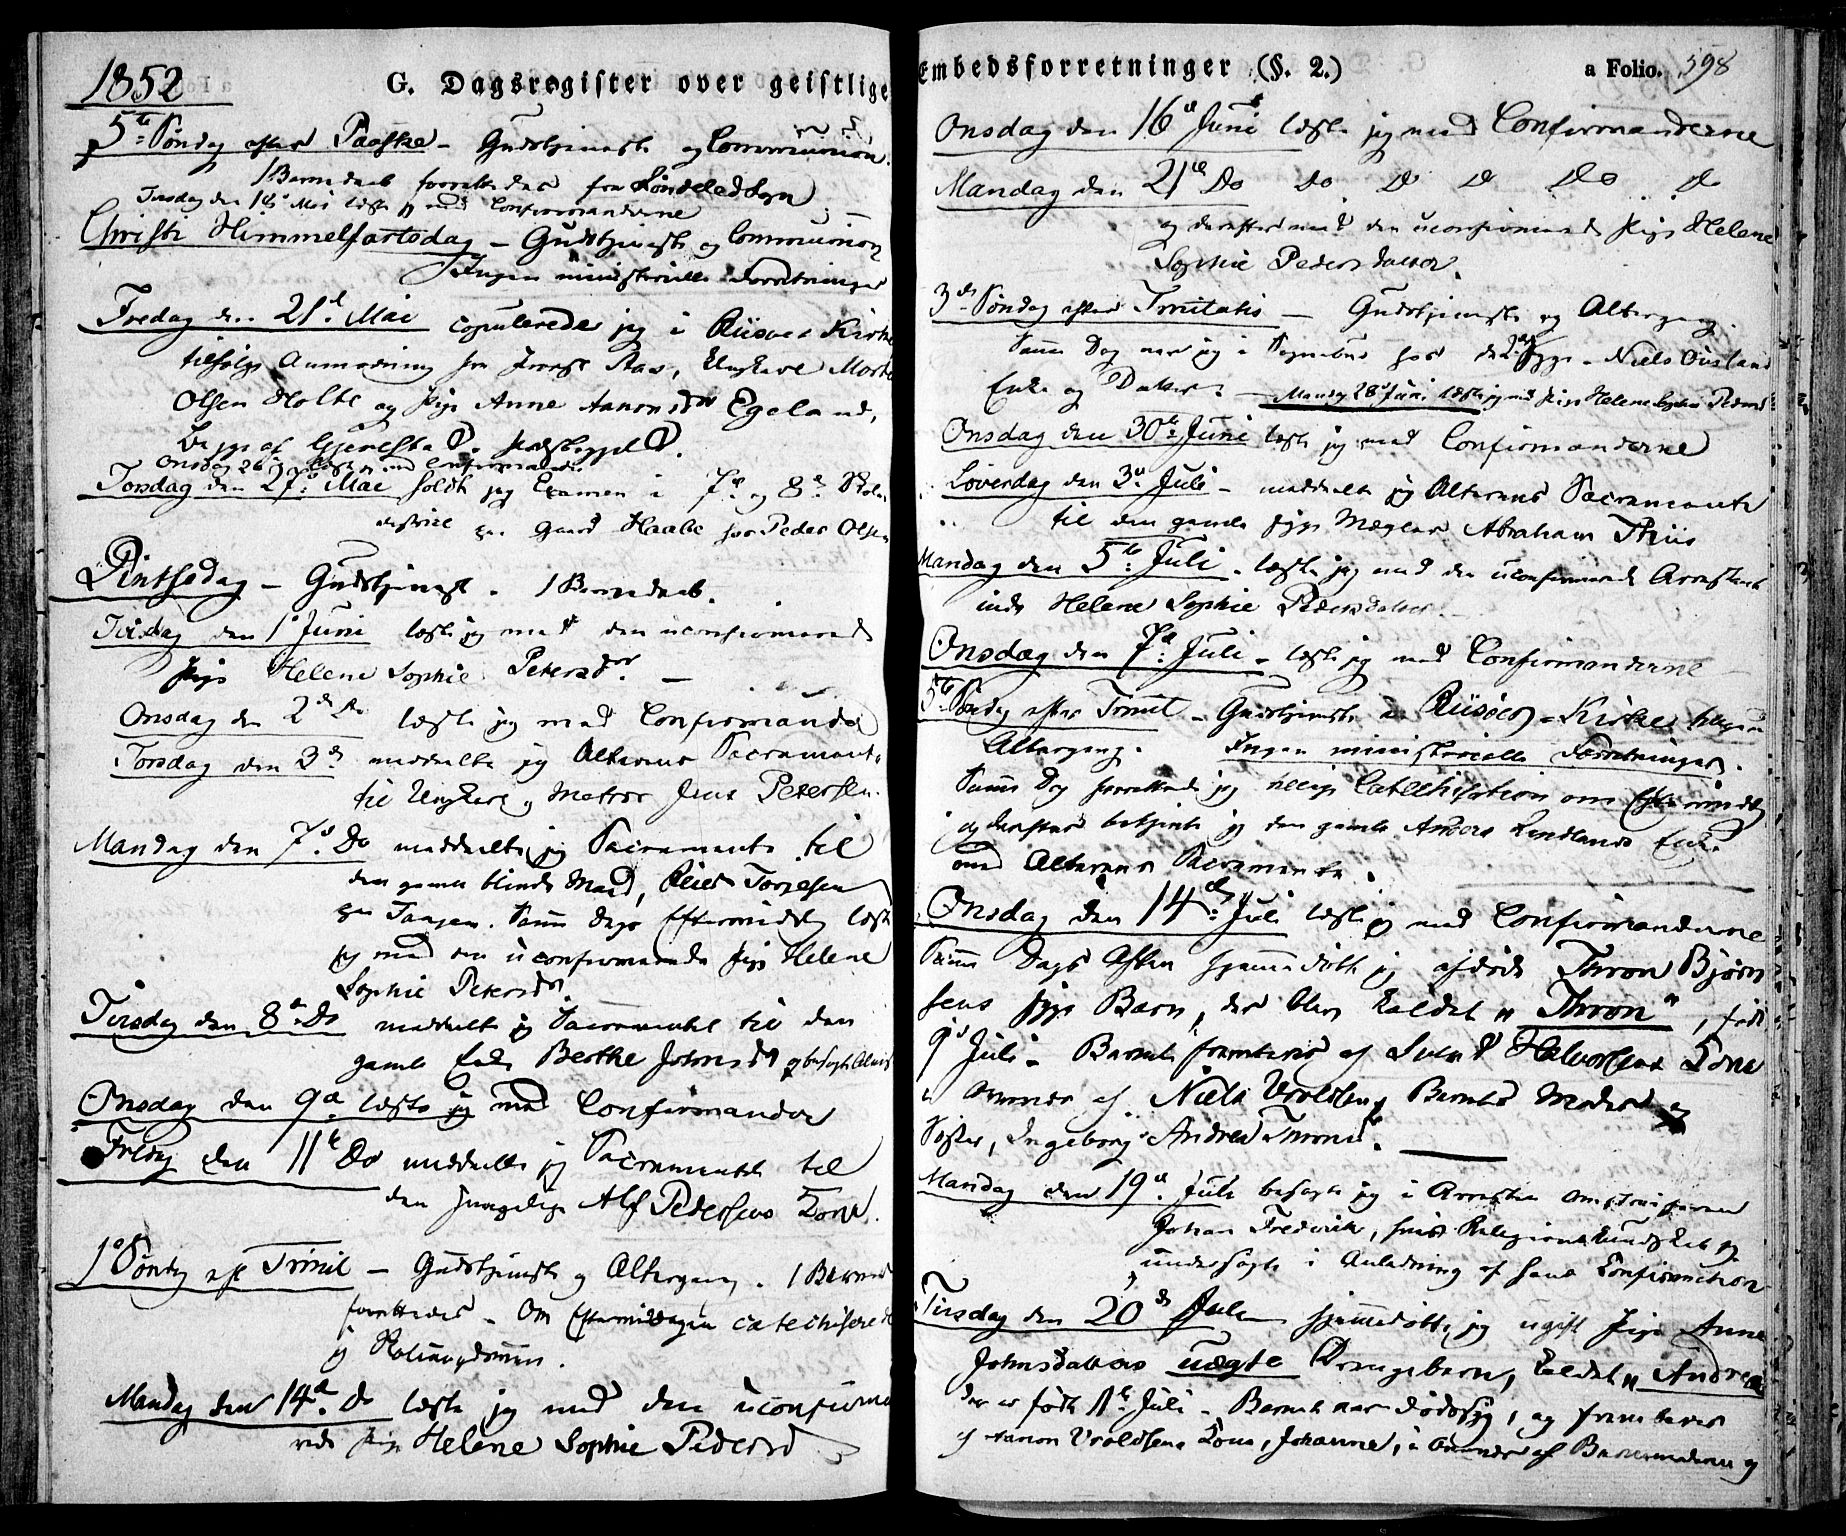 1852
G. Dagsregister over geistlige
5te Søndag efter Paaske – Gudstjeneste og Communion.
1 Barnedaab forrettedes fra Søndeled Sogn
Tirsdag den 18de Mai læste jeg med Confirmanderne
Christi Himmelfartsdag – Gudstjeneste og Communion
Ingen ministerielle Forretninger
Fredag den 21de Mai copulerede jeg i Riisøer Kirke
tilfølge Anmodning fra Provst Aas, Ungkarl Morten
Olsen Holte og Pige Anne Aanonsdr Egeland,
Begge af Gjerestad Præstegjeld.
Onsdag 26de læste jeg med Confirmander
Torsdag den 27de Mai holdt jeg Examen i 7de og 8de Skole
district paa Gaard Haabe hos Peder Olsen
Pintsedag – Gudstjeneste. 1 Barnedaab.
Tirsdag den 1ste Juni læste jeg med den uconfirmerede
Pige Helene Sophie Petersdr. –
Onsdag den 2den Do læste jeg med Confirmander
Torsdag den 3de meddeelte jeg Alterens Sacramente
til Ungkarl og Matros Jens Petersen.
Mandag den 7de Do meddeelte jeg Sacramente til
den gamle blinde Mand, Reier Torjesen
paa Tangen. Samme Dags Eftermiddag læste
jeg med den uconfirmerede Pige Helene
Sophie Petersdr.
Tirsdag den 8de Do meddeelte jeg Sacramentet til den
gamle Enke Berthe Johnsdr og besøgte
Onsdag den 9de læste jeg med Confirmander
Fredag den 11te Do meddeelte jeg Sacramentet til
den svagelige Alf Pedersens Kone.
1ste Søndag eft Trinit – Gudstjeneste og Altergang. 1 Barned
forrettedes – Om Eftermiddagen catechiserede
jeg
Mandag den 14de Do læste jeg med den uconfirme
rede Pige Helene Sophie Pedersd
Embedsforretninger (§. 2.) a Folio. 398
Onsdag den 16de Juni læste jeg med Confirmanderne
Mandag den 21de Do Do Do Do Do Do
og derefter med den uconfirmerede Pige Helene
Sophie Pedersdatter.
3die Søndag efter Trinitatis – Gudstjeneste og Altergang.
Samme Dag var jeg i Sognebud hos de 2de syge – Niels Ousland
Enke og Datter. – Mandag 28de Juni læste jeg med Pige Helene Sophie Pedersd
Onsdag den 30te Juni læste jeg med Confirmanderne
Løverdag den 3die Juli – meddeelte jeg Alterens Sacramente
til den gamle syge Mægler Abraham Thiis
Mandag den 5te Juli – læste jeg med den uconfirmerede Arrestant
inde Helene Sophie Pedersdatter. –
Onsdag den 7de Juli – læste jeg med Confirmanderne
5te Søndag efter Trinit – Gudstjeneste i Riisøer – Kirke. Ingen
Altergang. Ingen ministerielle Forretninger.
Samme Dag forrettede jeg tillige Catechisation om Eftermiddag
og derefter betjente jeg den gamle Anders Lindlands Enke
med Alterens Sacramente.
Onsdag den 14de Juli læste jeg med Confirmanderne
Samme Dags Aften hjemmedøbte jeg afdøde Thron Bjørn
sens syge Barn, der blev kaldet „Thron", født
9de Juli – Barnet frembares af Svend Halvorsens Kone
i Overvær af Niels Vroldsen, Barnets Moder og
Søster, Ingeborg Andrea Thronsd.
Mandag den 19de Juli besøgte jeg i Arresten Omstreiferen
Johan Frederik, hvis Religionskundskab jeg
undersøgte i Anledning af hans Confirmation
Tirsdag den 20de Juli hjemmedøbte jeg ugift Pige Anne
Johnsdatters uægte Drengebarn, kaldet „Andreas
der er født 1ste Juli – Barnet var dødssyg, og frembaret
af Aanon Vroldsens Kone, Johanne, i Overvær af Barnemoderen og